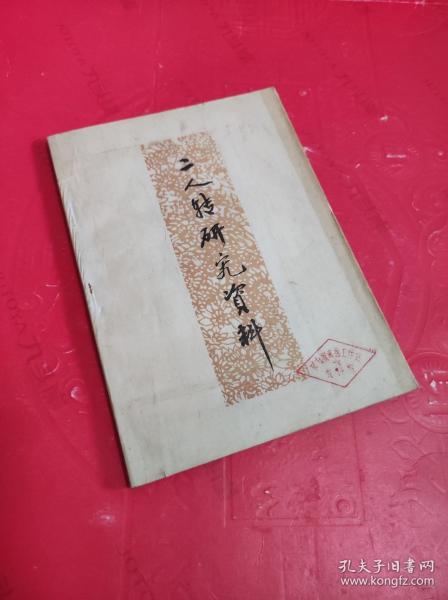 二人转研究資料
孔夫子旧书网
www.kongfz.com